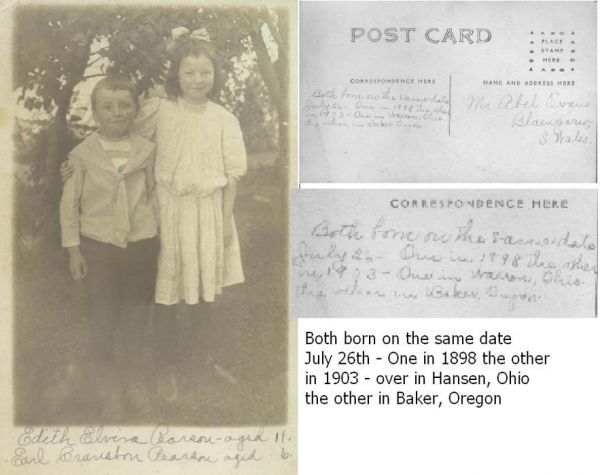 Edith Elvira Pearson - aged 11.
Earl Cranston Pearson aged 6.
POST CARD
PLACE
STAMP
HERE
CORRESPONDENCE HERE
NAME AND ADDRESS HERE
Both born on the same date
July 26 - One in 1898 the other
in 1903 - One in Warren, Ohio.
the other in Baker, Oregon.
Mr Abel Evans
Blaengarw,
S Wales.
CORRESPONDENCE HERE
Both born on the same date
July 26 - One in 1898 the other
in 1903 - One in Warren, Ohio.
the other in Baker, Oregon.
Both born on the same date
July 26th - One in 1898 the other
in 1903 - over in Hansen, Ohio
the other in Baker, Oregon